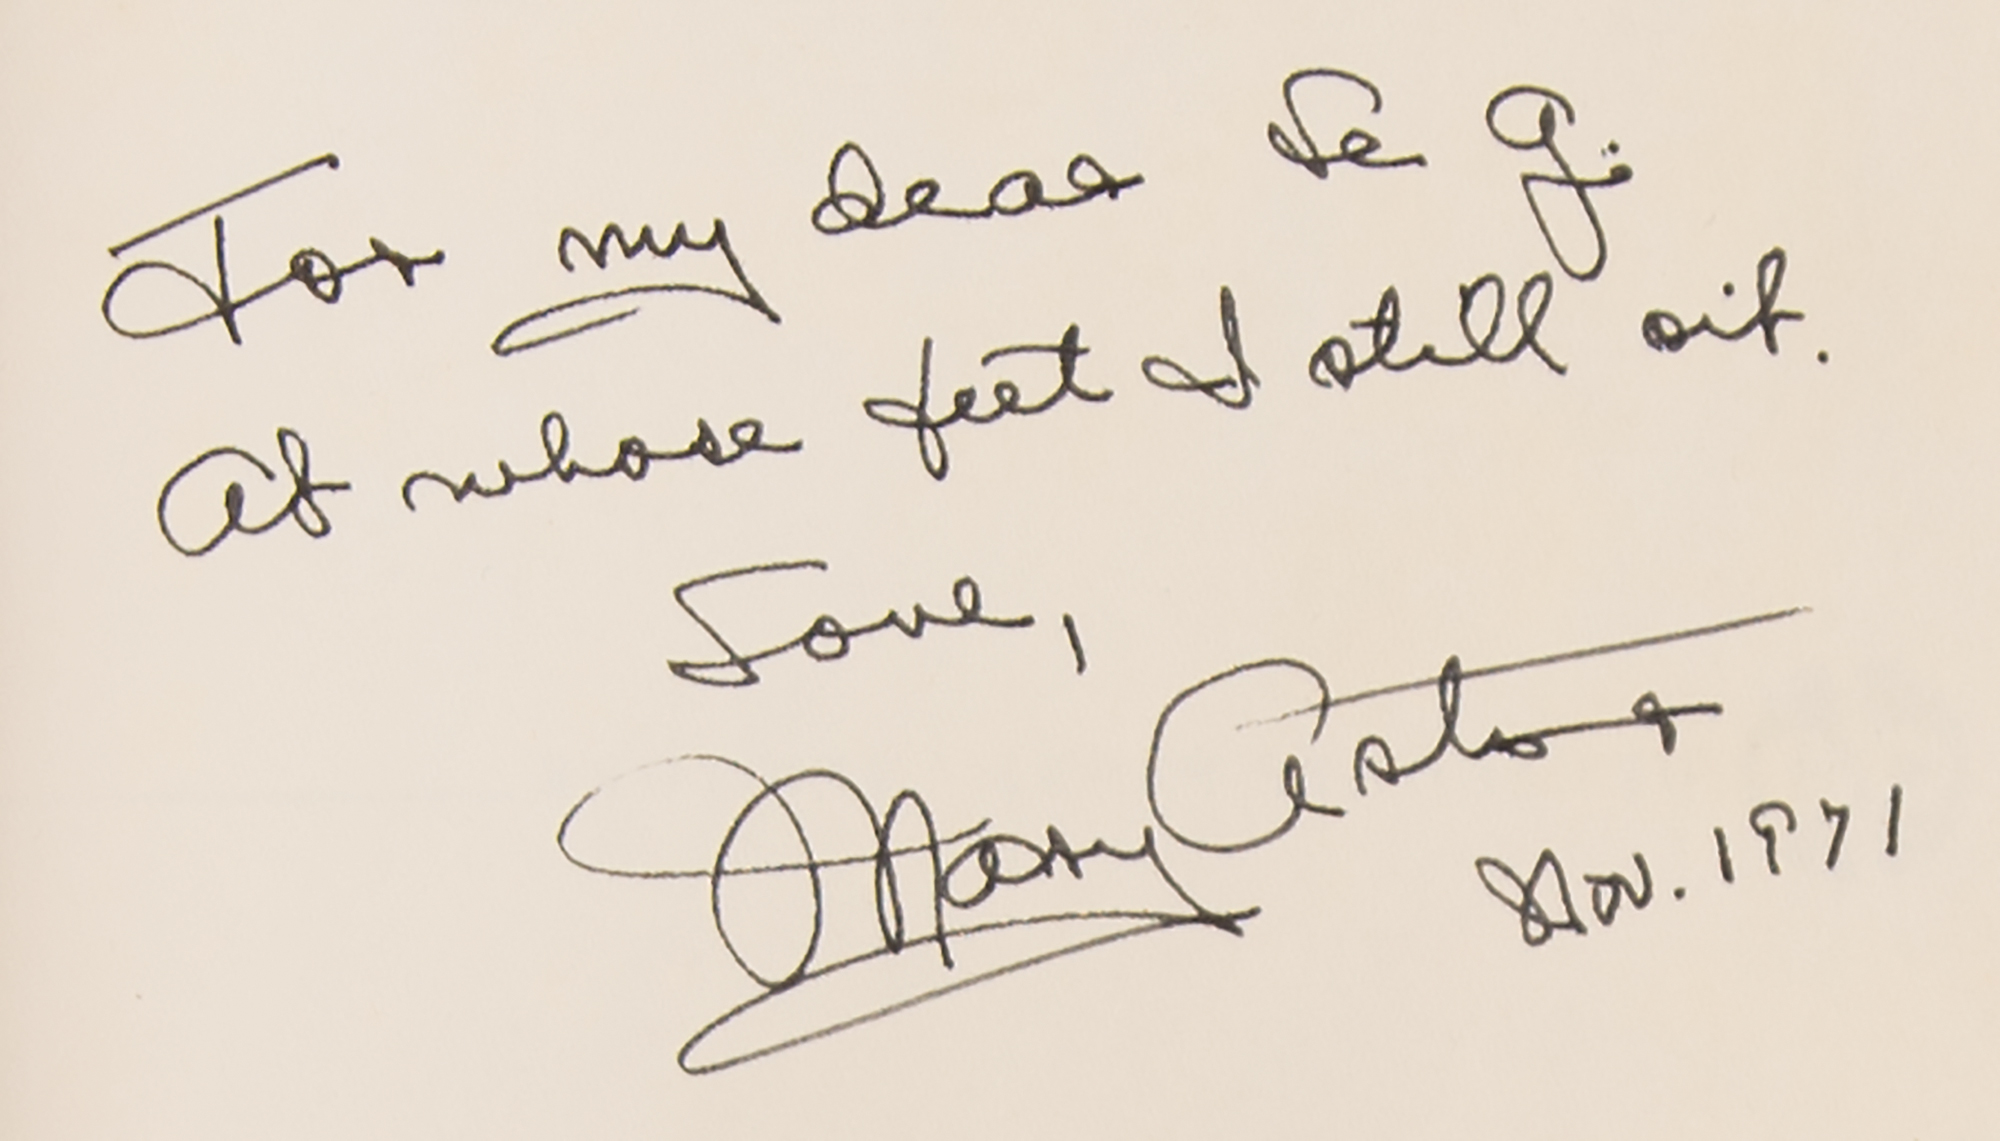 For my dear Le G:
At whose feet I still sit.
Love,
Mary Astor
Nov. 1971